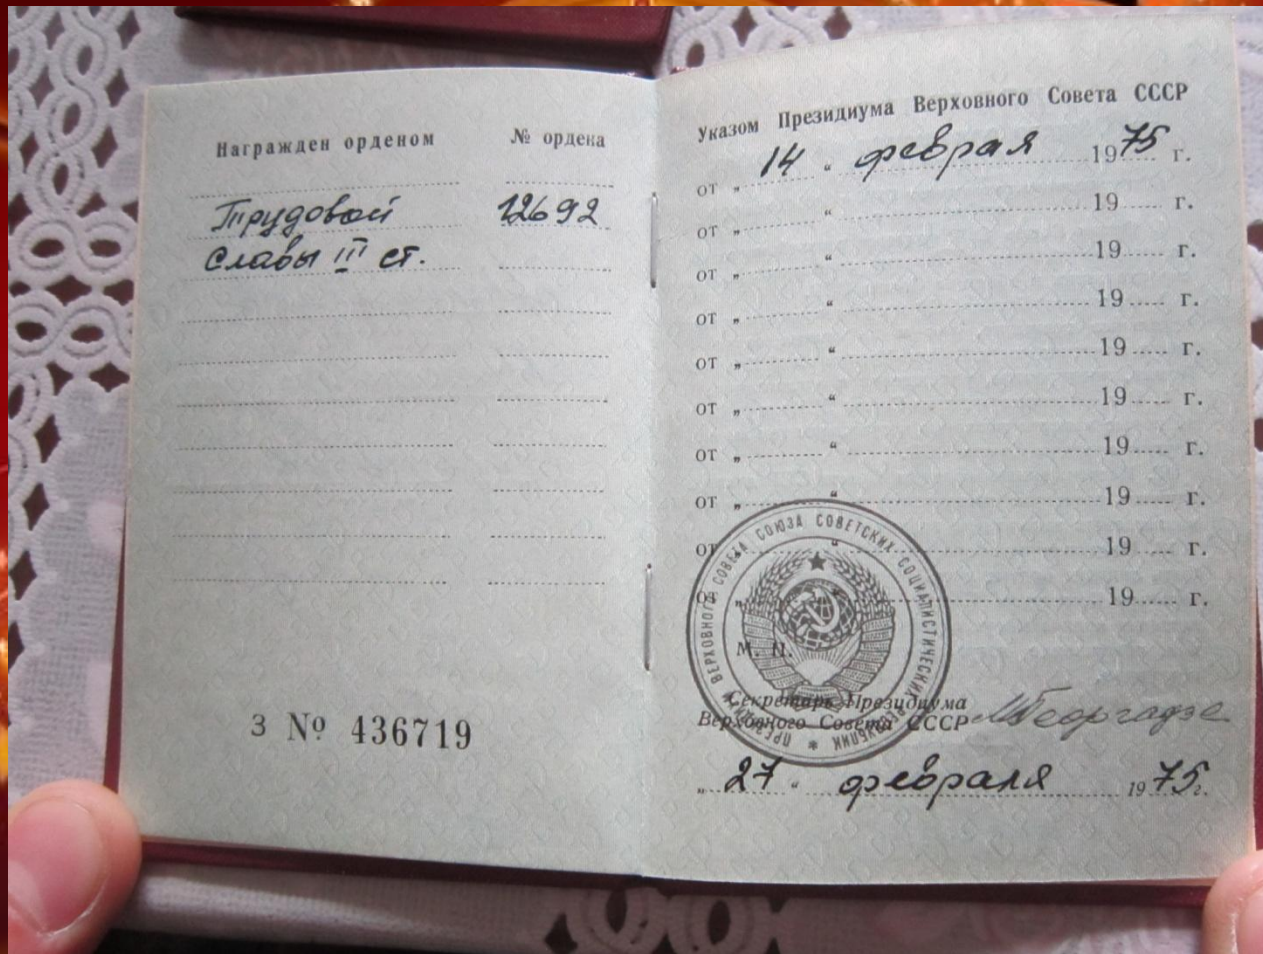 Награжден орденом № ордена
Трудовой 12692
Славы III ст.
З № 436719
Указом Президиума Верховного Совета СССР
от „ 14 “ февраля 1975 г.
от „ “ 19 г.
от „ “ 19 г.
от „ “ 19 г.
от „ “ 19 г.
от „ “ 19 г.
от „ “ 19 г.
от „ “ 19 г.
от „ “ 19 г.
от „ “ 19 г.
ПРЕЗИДИУМ ВЕРХОВНОГО СОВЕТА СОЮЗА СОВЕТСКИХ СОЦИАЛИСТИЧЕСКИХ РЕСПУБЛИК
М. П.
Секретарь Президиума
Верховного Совета СССР МГеоргадзе
„ 27 “ февраля 1975 г.